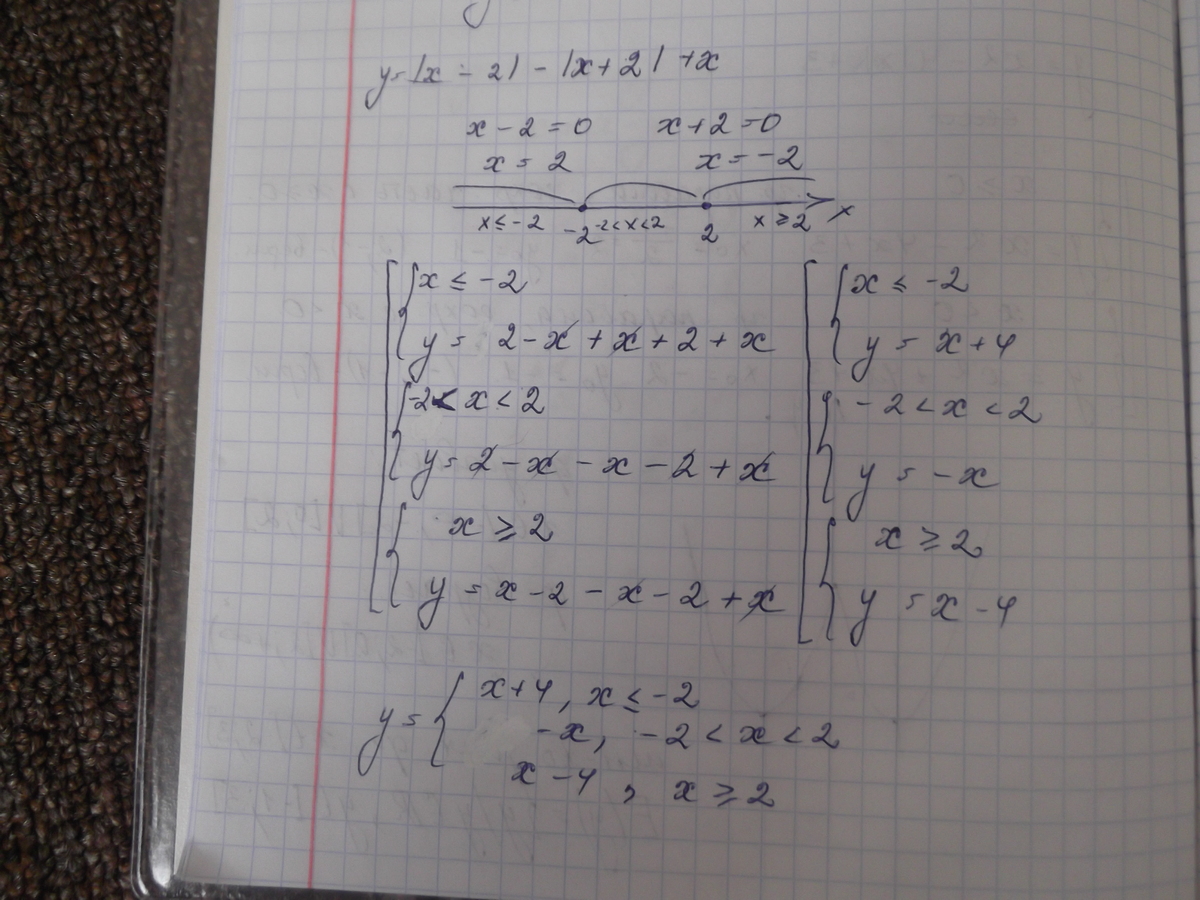 y=|x-2|-|x+2|+x
x-2=0 x+2=0
x=2 x=-2
x≤-2 -2 -2<x<2 2 x≥2 x
x≤-2
y=2-x+x+2+x
-2<x<2
y=2-x-x-2+x
x≥2
y=x-2-x-2+x
x≤-2
y=x+4
-2<x<2
y=-x
x≥2
y=x-4
y= x+4, x≤-2
-x, -2<x<2
x-4, x≥2